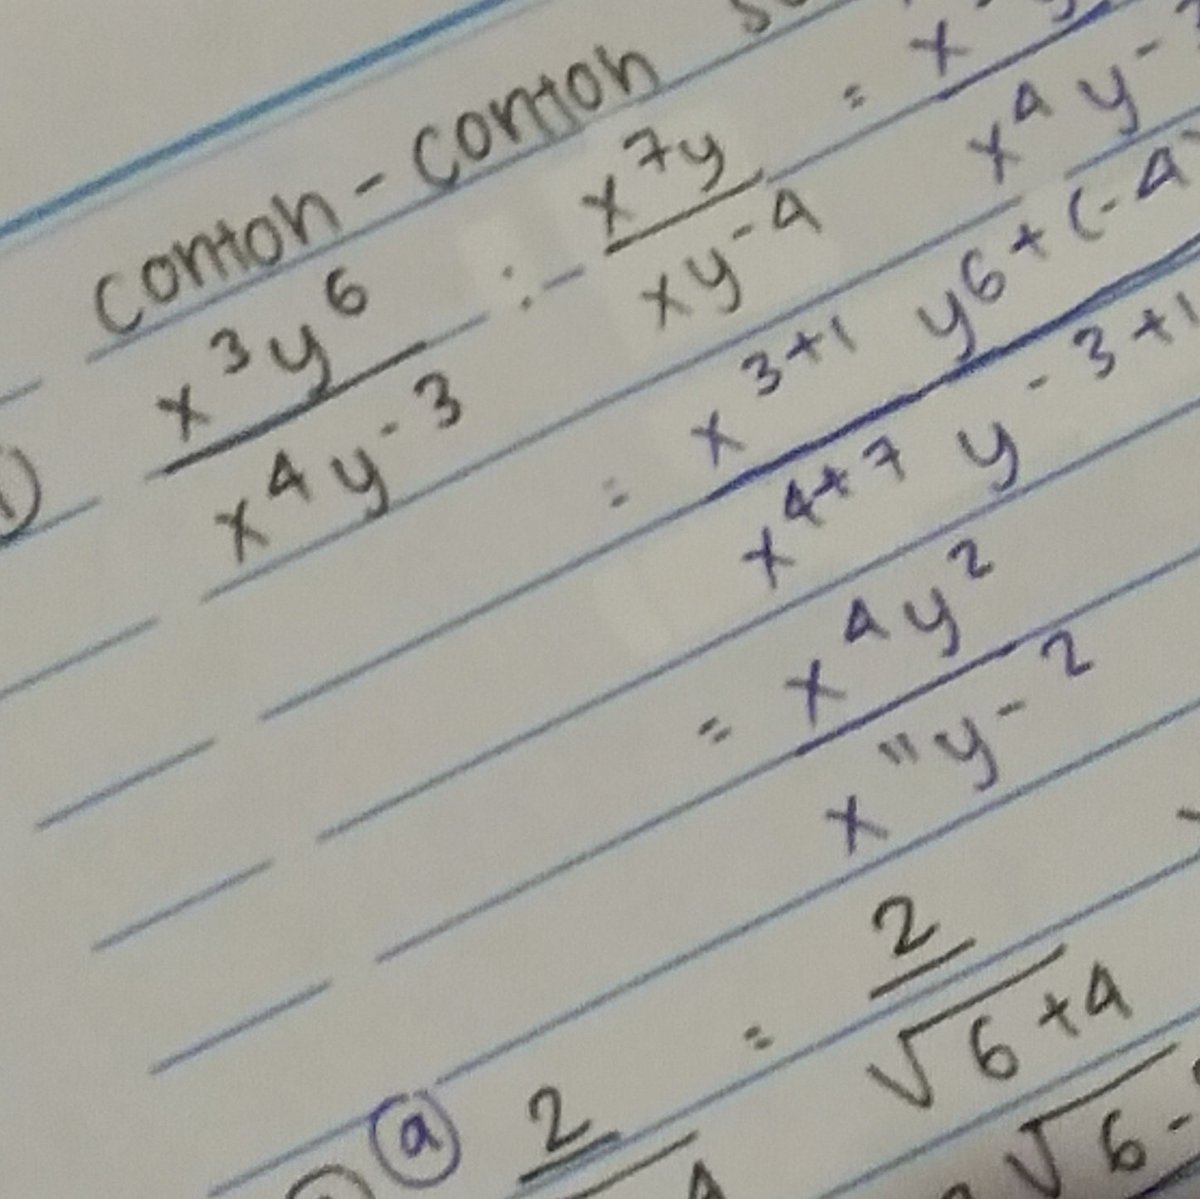 Contoh - Contoh
1) x³y⁶ / x⁴y⁻³ : x⁷y / xy⁻⁴ =
x⁴y⁻
= x³⁺¹ y⁶⁺⁽⁻⁴ / x⁴⁺⁷ y⁻³⁺¹
= x⁴y² / x¹¹y⁻²
(a) 2 = 2 / √6+4
√6-